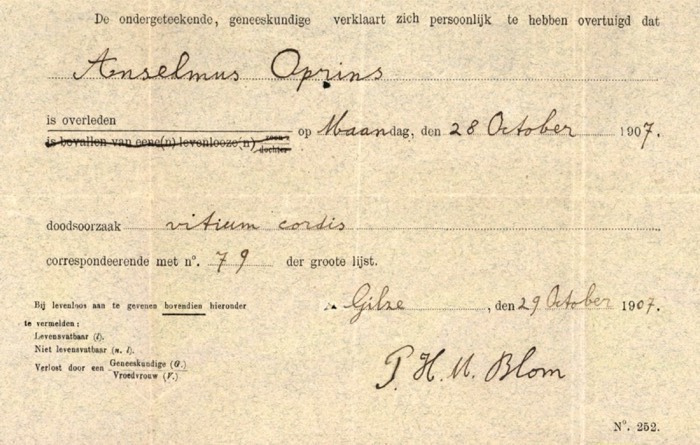 De ondergeteekende, geneeskundige verklaart zich persoonlijk te hebben overtuigd dat
Anselmus Oprins
is overleden
is bevallen van eene(n) levenlooze(n) zoon
dochter
op Maandag, den 28 October 1907.
doodsoorzaak vitium cordis
correspondeerende met n°. 79 der groote lijst.
Bij levenloos aan te gevenen bovendien hieronder
te vermelden:
Levensvatbaar (l).
Niet levensvatbaar (n. l).
Verlost door een Geneeskundige (G.)
Vroedvrouw (V.)
Gilze, den 29 October 1907.
P. H. M. Blom
N°. 252.